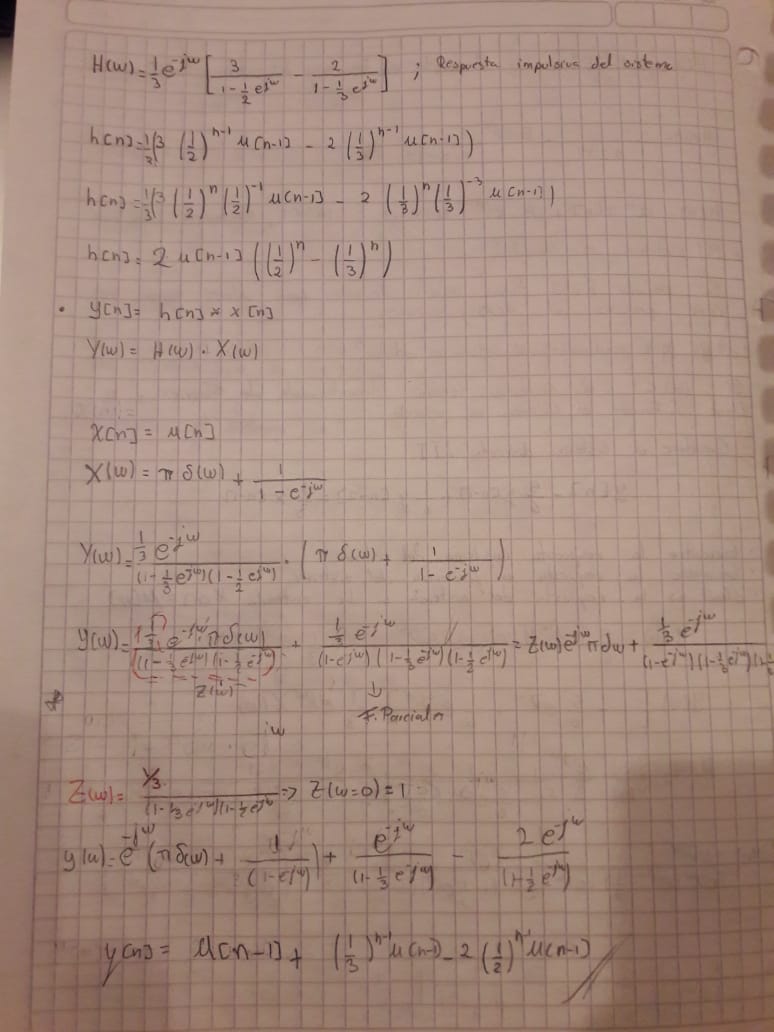 H(ω) = 1/3 e^-jω [ 3/(1 - 1/2 e^jω) - 2/(1 - 1/3 e^jω) ] ; Respuesta impulsiva del sistema
h[n] = 1/3 ( 3 (1/2)^n-1 u[n-1] - 2 (1/3)^n-1 u[n-1] )
h[n] = 1/3 ( 3 (1/2)^n (1/2)^-1 u[n-1] - 2 (1/3)^n (1/3)^-3 u[n-1] )
h[n] = 2 u[n-1] ( (1/2)^n - (1/3)^n )
• y[n] = h[n] * x[n]
Y(ω) = H(ω) · X(ω)
X[n] = u[n]
X(ω) = π δ(ω) + 1/(1 - e^-jω)
Y(ω) = 1/3 e^-jω / ((1 + 1/3 e^jω)(1 - 1/2 e^jω)) · ( π δ(ω) + 1/(1 - e^-jω) )
y(ω) = 1/3 e^-jω π δ(ω) / ((1 - 1/3 e^jω)(1 - 1/2 e^-jω)) + 1/3 e^-jω / ((1 - e^jω)(1 - 1/3 e^-jω)(1 - 1/2 e^jω)) = Z(ω) e^-jω π dω + 1/3 e^-jω / ((1 - e^-jω)(1 - 1/3 e^-jω)(1
Z(ω)
↓
F. Parciales
iω
Z(ω) = 1/3 / ((1 - 1/3 e^-jω)(1 - 1/2 e^jω)) => Z(ω=0) = 1
y(ω) = e^-jω ( π δ(ω) + 1/(1 - e^-jω) ) + e^-jω/(1 - 1/3 e^-jω) - 2 e^-jω/(1 + 1/2 e^-jω)
y[n] = u[n-1] + (1/3)^n-1 u(n-1) - 2 (1/2)^n-1 u[n-1]